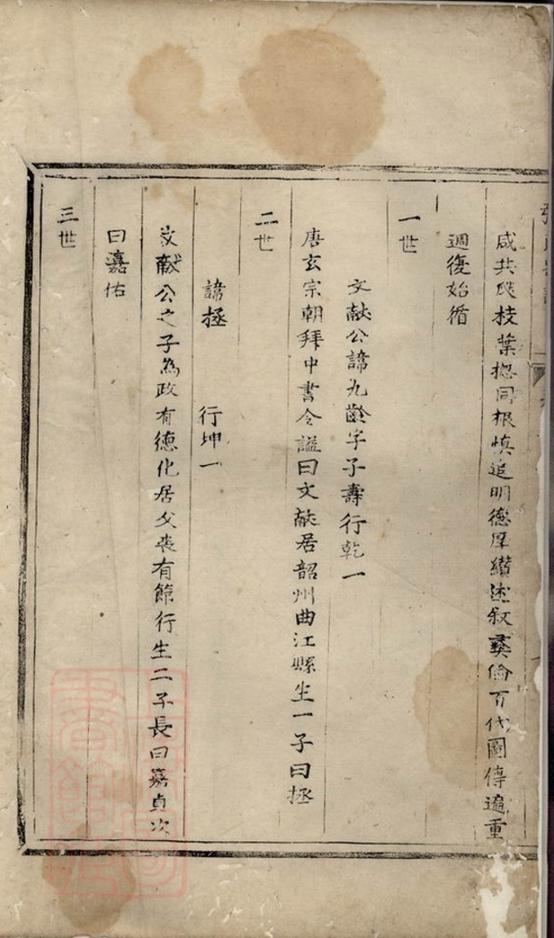 咸共氏枝葉揔同根慎追明德厚纘述叙彞倫百代圖傳遍重
週復始循
一世
文献公諱九齡字子壽行乾一
唐玄宗朝拜中書令謚曰文献居韶州曲江縣生一子曰拯
二世
諱拯 行坤一
文献公之子為政有德化居父喪有節行生二子長曰嘉貞次
曰嘉佑
三世